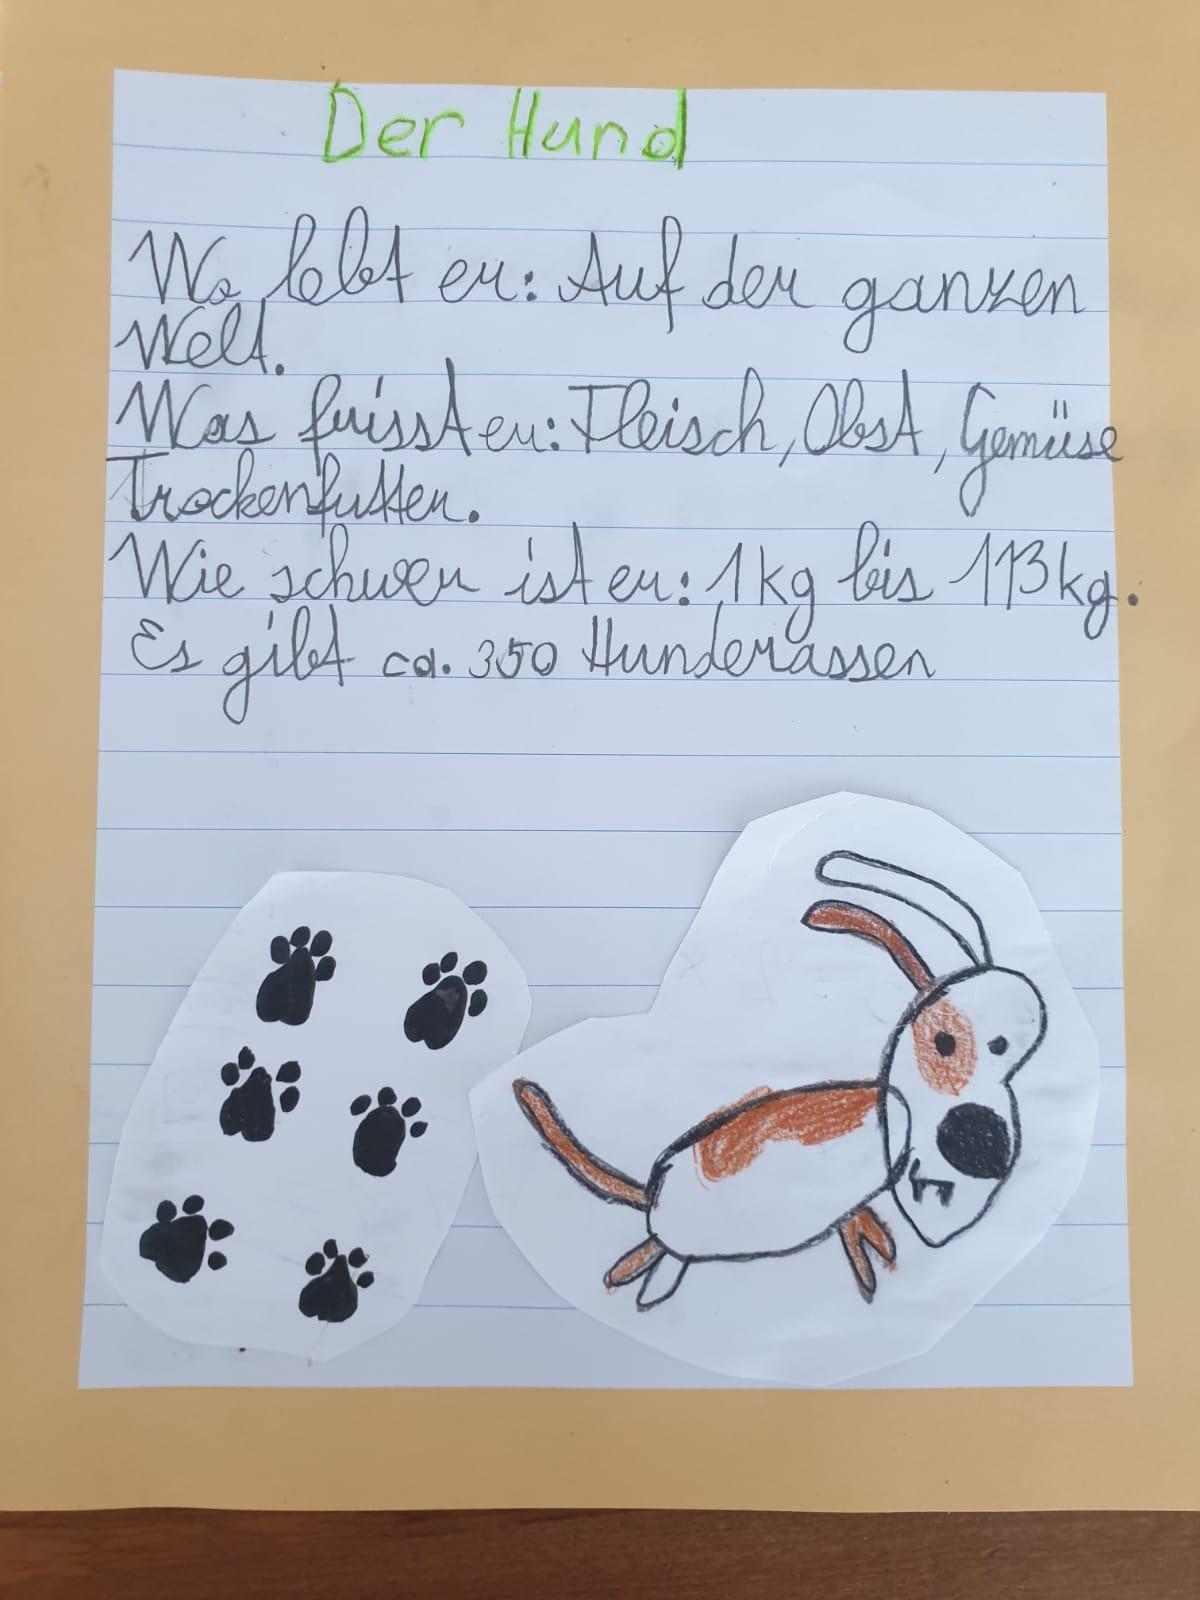 Der Hund
Wo lebt er: Auf der ganzen
Welt.
Was frisst er: Fleisch, Obst, Gemüse
Trockenfutter.
Wie schwer ist er: 1kg bis 113kg.
Es gibt ca. 350 Hunderassen